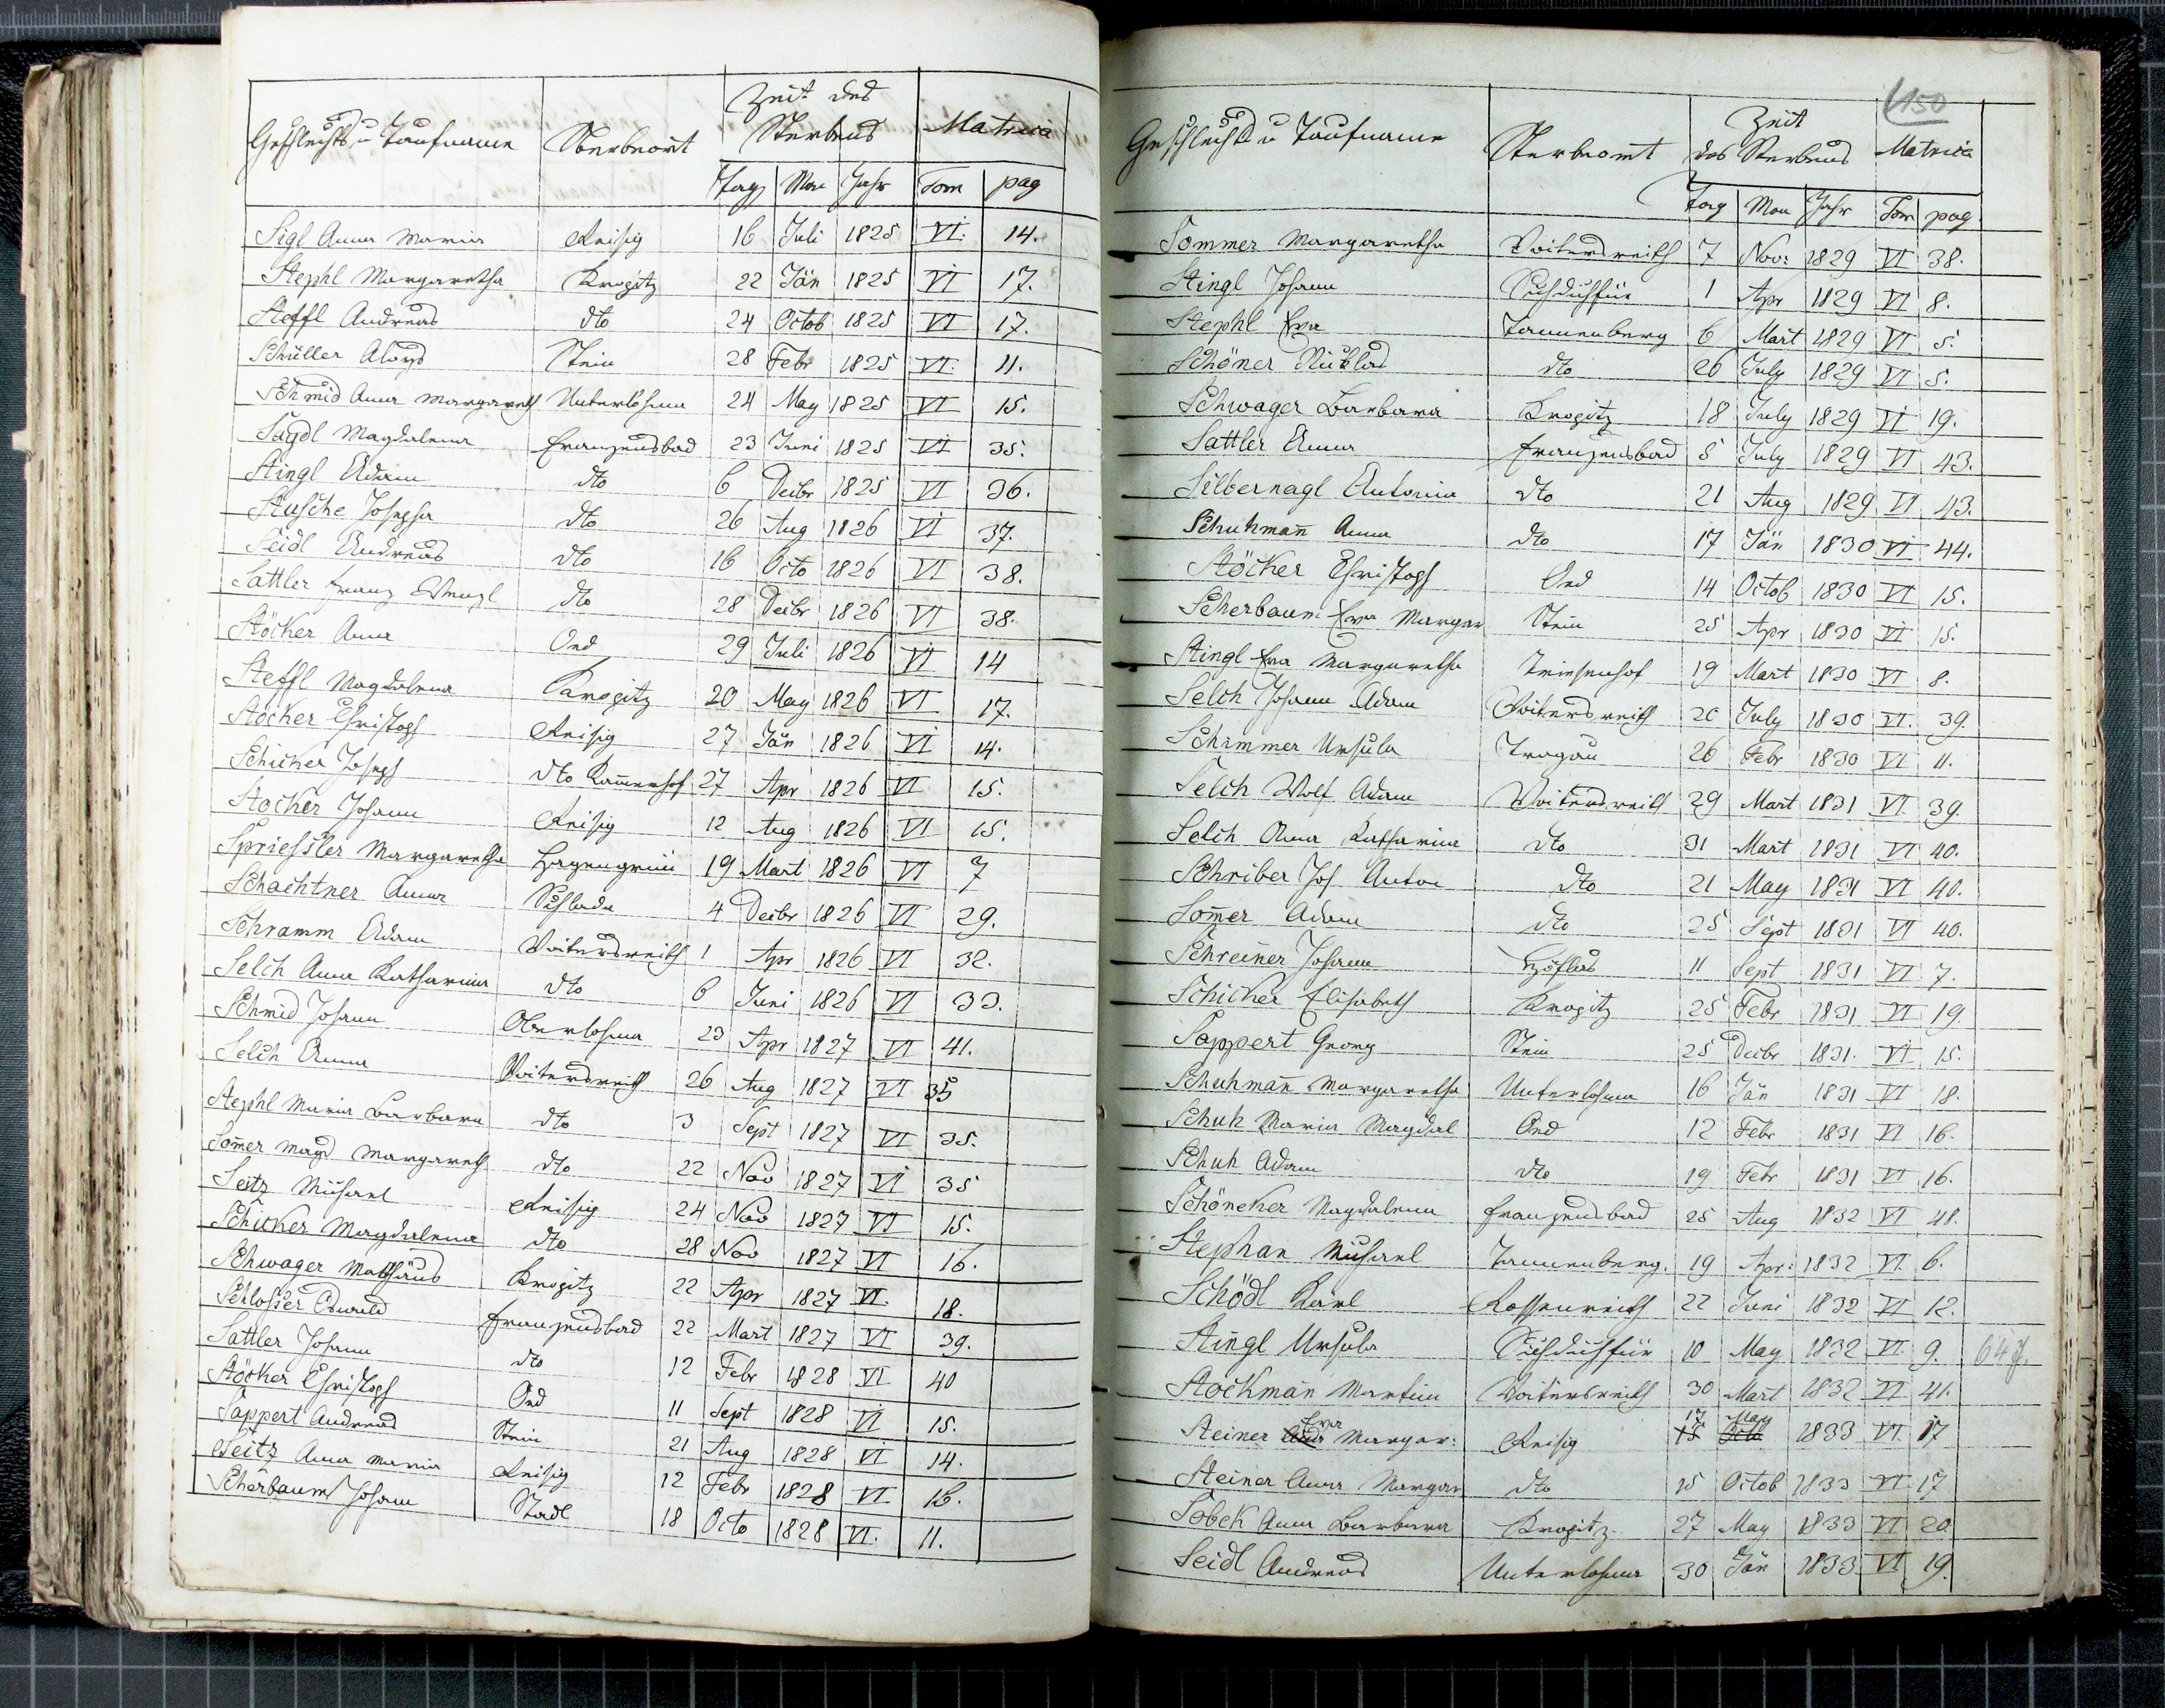 Geschlechts u Taufname Sterbeort Zeit des Sterbens Matrica
Tag Mon Jahr Tom pag
Sigl Anna Maria Reisig 16 Juli 1825 VI. 14.
Stephl Margaretha Krogitz 22 Jän 1825 VI 17.
Steffl Andreas dto 24 Octob 1825 VI 17.
Schüller Aloys Stein 28 Febr 1825 VI. 11.
Schmid Anna Margareth Unterlohma 24 May 1825 VI 15.
Sagdl Magdalena Franzensbad 23 Juni 1825 VI 35.
Stingl Adam dto 6 Decbr 1825 VI 36.
Stusche Josepha dto 26 Aug 1826 VI 37.
Seidl Andreas dto 16 Octo 1826 VI 38.
Sattler Franz Wenzl dto 28 Decbr 1826 VI 38.
Stöcker Anna Oed 29 Juli 1826 VI 14
Steffl Magdalena Krogitz 20 May 1826 VI 17.
Stöcker Christoph Reisig 27 Jän 1826 VI 14.
Schicker Joseph dto Kammerhof 27 Apr 1826 VI 15.
Stocker Johann Reisig 12 Aug 1826 VI 15.
Spriessler Margaretha Hagengrün 19 Mart 1826 VI 7
Schachtner Anna Schlada 4 Decbr 1826 VI 29.
Schramm Adam Voitersreith 1 Apr 1826 VI 32.
Selch Anna Katharina dto 6 Juni 1826 VI 33.
Schmid Johann Oberlohma 23 Apr 1827 VI 41.
Selch Anna Voitersreith 26 Aug 1827 VI 35
Stephl Maria Barbara dto 3 Sept 1827 VI 35.
Som̅er Magd Margareth dto 22 Nov 1827 VI 35
Seitz Michael Reissig 24 Nov 1827 VI 15.
Schicker Magdalena dto 28 Nov 1827 VI 16.
Schwager Mathäus Krogitz 22 Apr 1827 VI. 18.
Schlosser Oswald Franzensbad 22 Mart 1827 VI 39.
Sattler Johann dto 12 Febr 1828 VI 40
Stöcker Christoph Oed 11 Sept 1828 VI 15.
Sappert Andreas Stein 21 Aug 1828 VI 14.
Seitz Anna Maria Reisig 12 Febr 1828 VI 16.
Scherbaum Johann Stadl 18 Octo 1828 VI. 11.
150
Geschlechts u Taufname Sterbeort Zeit des Sterbens Matrica
Tag Mon Jahr Tom pag.
Sommer Margaretha Voitersreith 7 Nov: 1829 VI 38.
Stingl Johann 1 Apr 1829 VI 8.
Stephl Eva Tannenberg 6 Mart 1829 VI 5.
Schöner Niklas dto 26 July 1829 VI 5.
Schwager Barbara Krogitz 18 July 1829 VI 19.
Sattler Anna Franzensbad 5 July 1829 VI 43.
Silbernagl Antonia dto 21 Aug 1829 VI 43.
Schuhman̅ Anna dto 17 Jän 1830 VI 44.
Stöcker Christoph Oed 14 Octob 1830 VI 15.
Scherbaum Eva Margar Stein 25 Apr 1830 VI 15.
Stingl Eva Margaretha Triesenhof 19 Mart 1830 VI 8.
Selch Johann Adam Voitersreith 20 July 1830 VI. 39.
Schimmer Ursula Trogau 26 Febr 1830 VI 11.
Selch Wolf Adam Voitersreith 29 Mart 1831 VI 39.
Selch Anna Katharina dto 31 Mart 1831 VI 40.
Schriber Jos Anton dto 21 May 1831 VI 40.
Som̅er Adam dto 25 Sept 1831 VI 40.
Schreiner Johann Höflas 11 Sept 1831 VI 7.
Schicker Elisabeth Krogitz 25 Febr 1831 VI 19
Sappert Georg Stein 25 Decbr 1831. VI 15.
Schuhman̅ Margaretha Unterlohma 16 Jän 1831 VI 18.
Schuh Maria Magdal Oed 12 Febr 1831 VI 16.
Schuh Adam dto 19 Febr 1831 VI 16.
Schönecker Magdalena Franzensbad 25 Aug 1832 VI 48.
Stephan Michael Tannenberg. 19 Apr: 1832 VI 6.
Schödl Karl Rossenreith 22 Juni 1832 VI 12.
Stingl Ursula 10 May 1832 VI 9.
Stöckman̅ Martin Voitersreith 30 Mart 1832 VI 41.
Eva 17 May
Steiner Anna Margar: Reisig 15 Octo 1833 VI 17
Steiner Anna Margar dto 15 Octob 1833 VI 17
Sobek Anna Barbara Krogitz 27 May 1833 VI 20
Seidl Andreas Unterlohma 30 Jän 1833 VI 19.